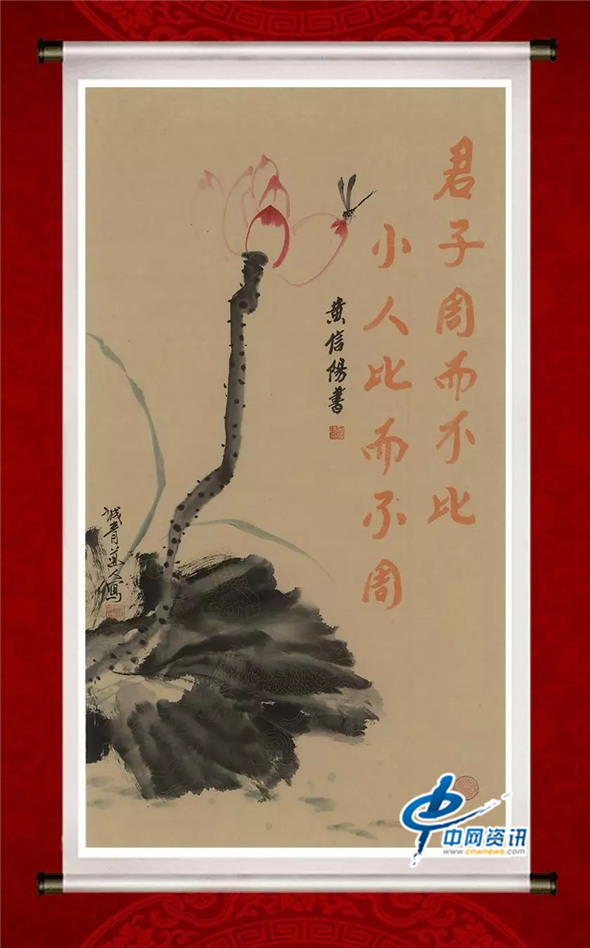 君子周而不比
小人比而不周
黄信陽書
诚青道人寫
中网资讯
www.cnwnews.com